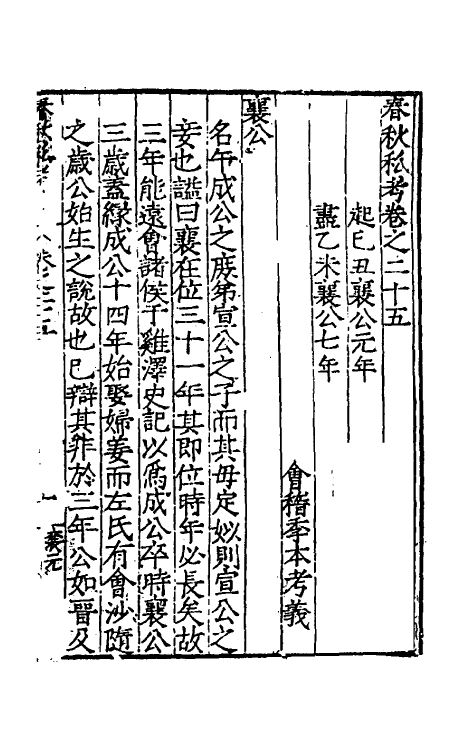 春秋私考卷之二十五
起巳丑襄公元年
盡乙未襄公七年
會稽季本考義
襄公
名午成公之庶弟宣公之子而其毋定姒則宣公之
妾也謚曰襄在位三十一年其即位時年必長矣故
三年能遠會諸侯于雞澤史記以爲成公卒時襄公
三歲蓋緣成公十四年始娶婦姜而左氏有會沙隨
之歲公始生之說故也巳辯其非於三年公如晉及